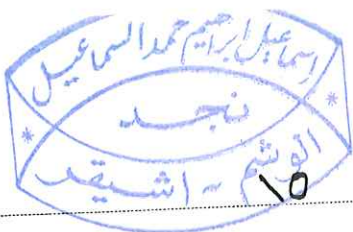 اسماعيل ابراهيم حمد السماعيل
نجد
الوشم - اشيقر
١٥